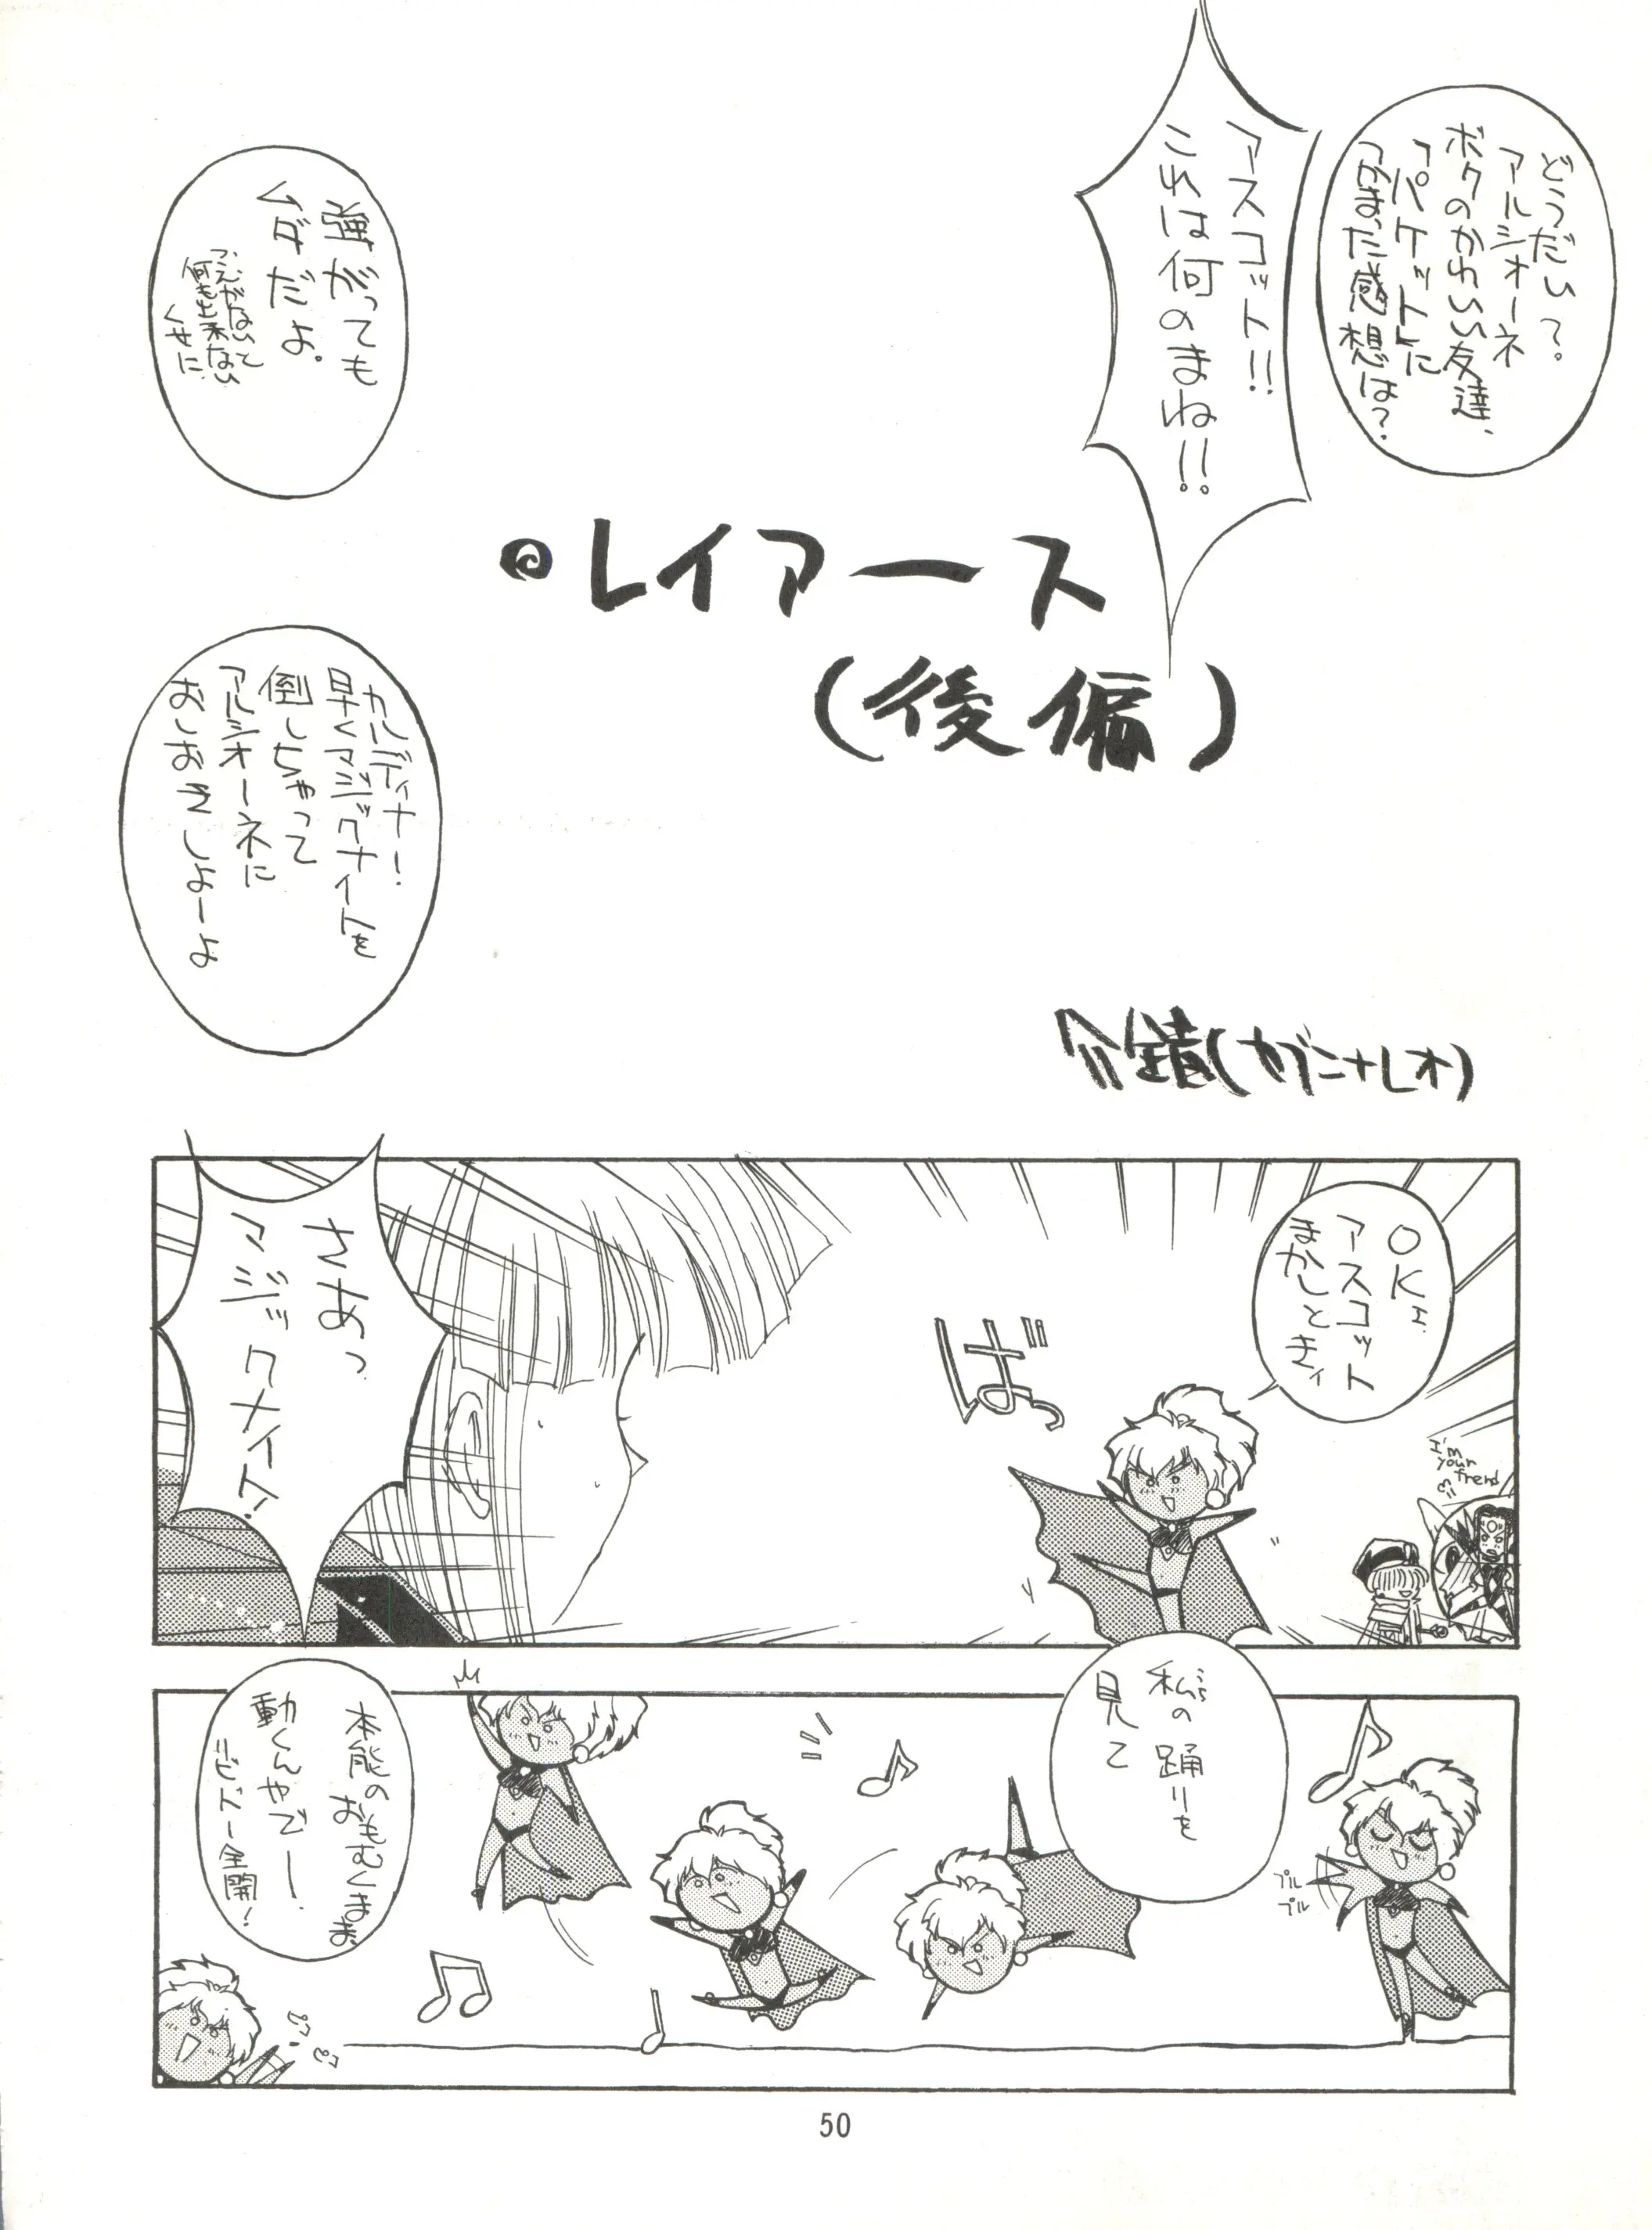 どうだい?
アルシオーネ
ボクのかわいい友達、
「パケット」に
つかまった感想は?
アスコット!!
これは何のまね!!
強がっても
ムダだよ。
何も出来ない
くせに
レイアース
(後編)
カルディナ!
早くマジックナイトを
倒しちゃって
アルシオーネに
おしおきしよーよ
OKェ
アスコット
まかしときィ
I'm
your
frend
ばっ
さあっ
マジックナイト!
私の踊りを
見て
プル
プル
本能のおもむくまま、
動くんやでー
リビドー全開!
50